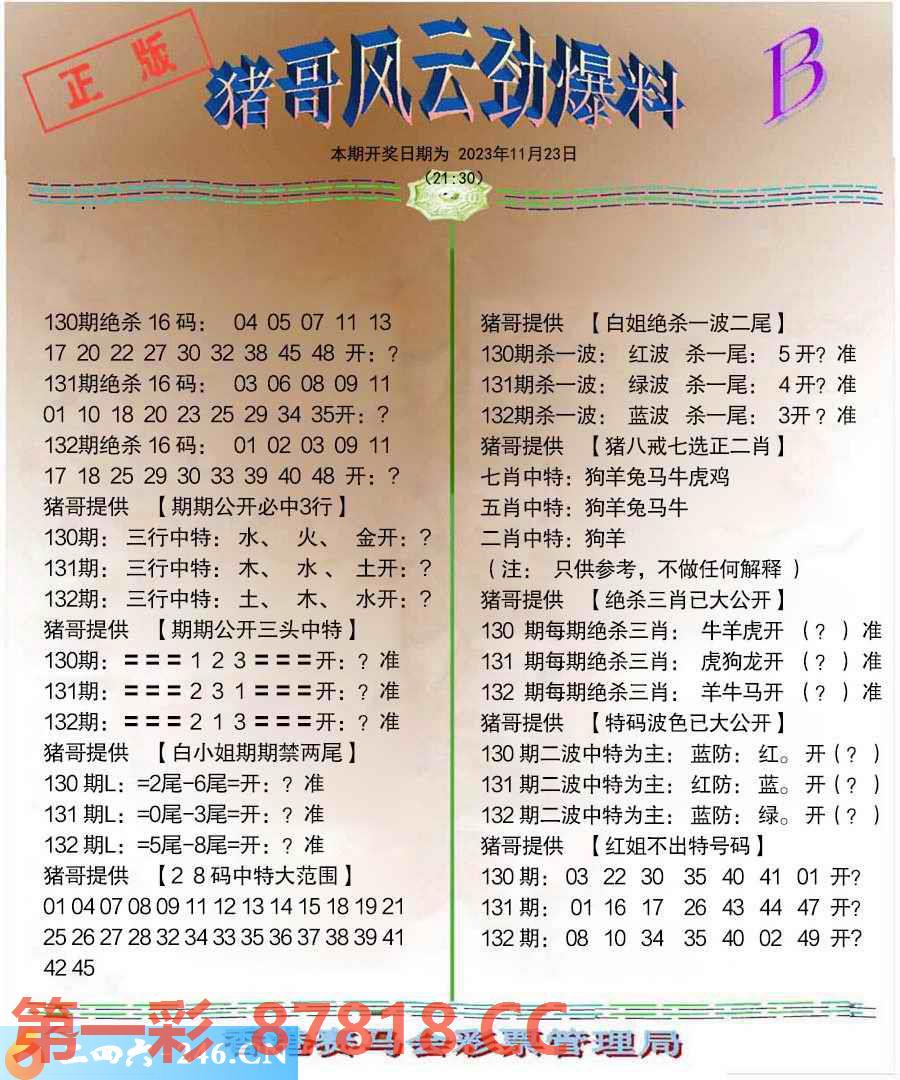 正版
猪哥风云劲爆料
B
本期开奖日期为 2023年11月23日
(21:30)
130期绝杀 16 码： 04 05 07 11 13
17 20 22 27 30 32 38 45 48 开：?
131期绝杀 16 码： 03 06 08 09 11
01 10 18 20 23 25 29 34 35开：?
132期绝杀 16 码： 01 02 03 09 11
17 18 25 29 30 33 39 40 48 开：?
猪哥提供 【期期公开必中3行】
130期： 三行中特：水、 火、 金开：?
131期： 三行中特：木、 水、 土开：?
132期： 三行中特：土、 木、 水开：?
猪哥提供 【期期公开三头中特】
130期：＝＝＝１２３＝＝＝开：? 准
131期：＝＝＝２３１＝＝＝开：? 准
132期：＝＝＝２１３＝＝＝开：? 准
猪哥提供 【白小姐期期禁两尾】
130 期L：=2尾-6尾=开：? 准
131 期L：=0尾-3尾=开：? 准
132 期L：=5尾-8尾=开：? 准
猪哥提供 【２８码中特大范围】
01 04 07 08 09 11 12 13 14 15 18 19 21
25 26 27 28 32 34 33 35 36 37 38 39 41
42 45
猪哥提供 【白姐绝杀一波二尾】
130期杀一波： 红波 杀一尾： 5 开? 准
131期杀一波： 绿波 杀一尾： 4 开? 准
132期杀一波： 蓝波 杀一尾： 3开 ? 准
猪哥提供 【猪八戒七选正二肖】
七肖中特：狗羊兔马牛虎鸡
五肖中特：狗羊兔马牛
二肖中特：狗羊
（注： 只供参考，不做任何解释 ）
猪哥提供 【绝杀三肖已大公开】
130 期每期绝杀三肖： 牛羊虎开 （? ）准
131 期每期绝杀三肖： 虎狗龙开 （? ）准
132 期每期绝杀三肖： 羊牛马开 （? ）准
猪哥提供 【特码波色已大公开】
130 期二波中特为主：蓝防：红。开（? ）
131 期二波中特为主：红防：蓝。开（? ）
132 期二波中特为主：蓝防：绿。开（? ）
猪哥提供 【红姐不出特号码】
130 期： 03 22 30 35 40 41 01 开?
131 期： 01 16 17 26 43 44 47 开?
132 期： 08 10 34 35 40 02 49 开?
第一彩 87818.CC
二四六 246.CN
香港赛马会彩票管理局